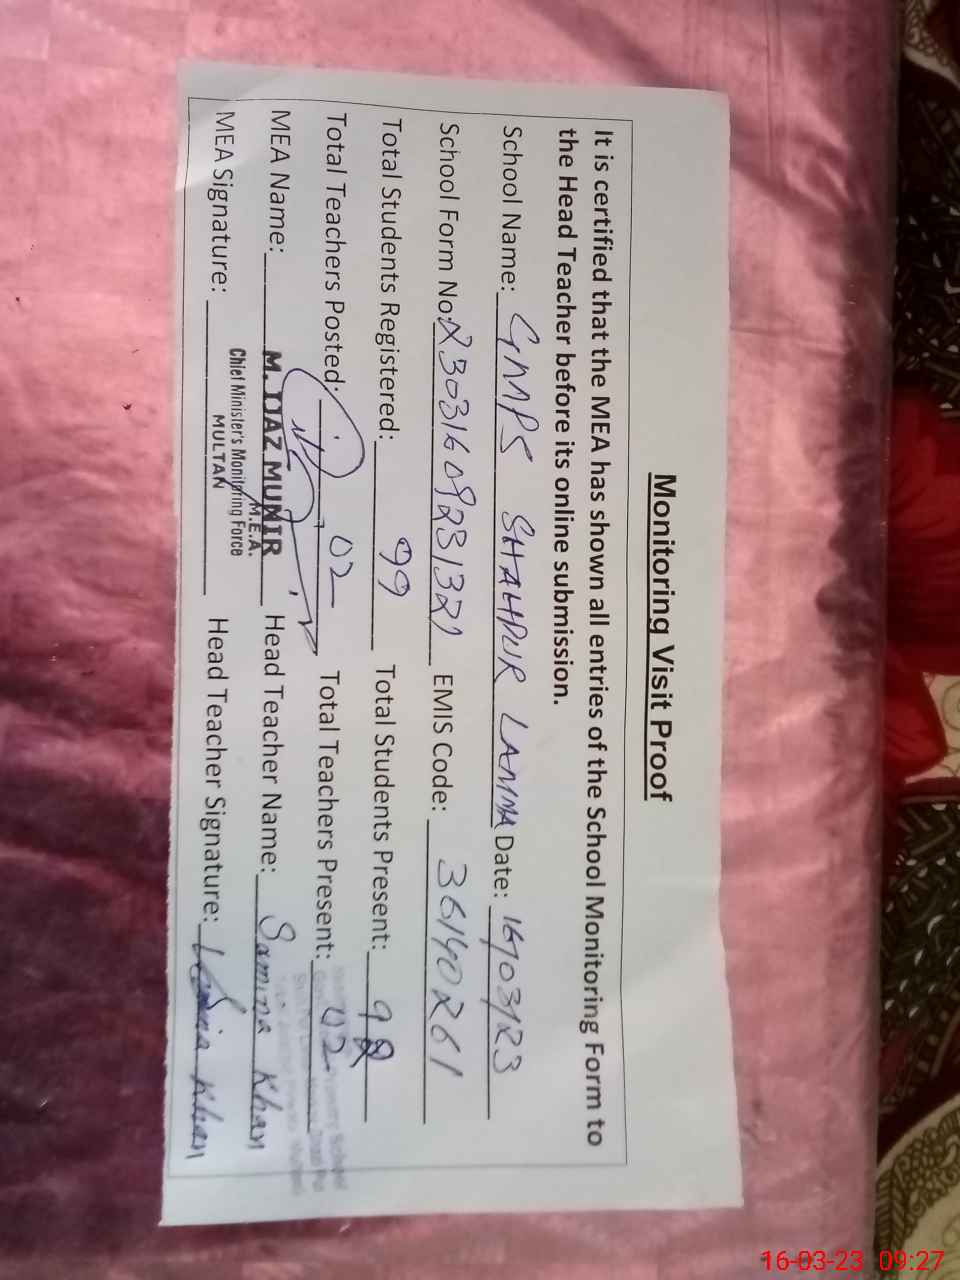 Monitoring Visit Proof
It is certified that the MEA has shown all entries of the School Monitoring Form to
the Head Teacher before its online submission.
School Name: GMPS SHAHPUR LAMMA Date: 16/03/23
School Form No: 23031609231321 EMIS Code: 36140261
Total Students Registered: 99 Total Students Present: 92
Total Teachers Posted: 02 Total Teachers Present: 02
MEA Name: M. IJAZ MUNIR Head Teacher Name: Samina Khan
M.E.A.
Chief Minister's Monitoring Force
MULTAN
MEA Signature: Head Teacher Signature: Khan
16-03-23 09:27